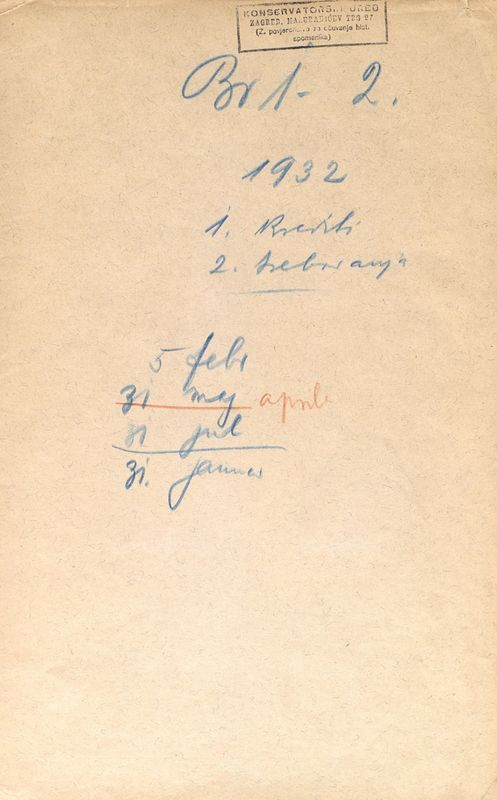 KONSERVATORSKI URED
ZAGREB, MAŽURANIĆEV TRG 27
(Z. povjerenstvo za očuvanje hist.
spomenika)
Br 1- 2.
1932
1. Krediti
2. trebovanja
5 febr
31 maj aprila
31 jul
31. januar